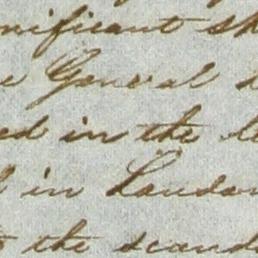 nificant sh
e General s
ed in the l
l in London
the scand